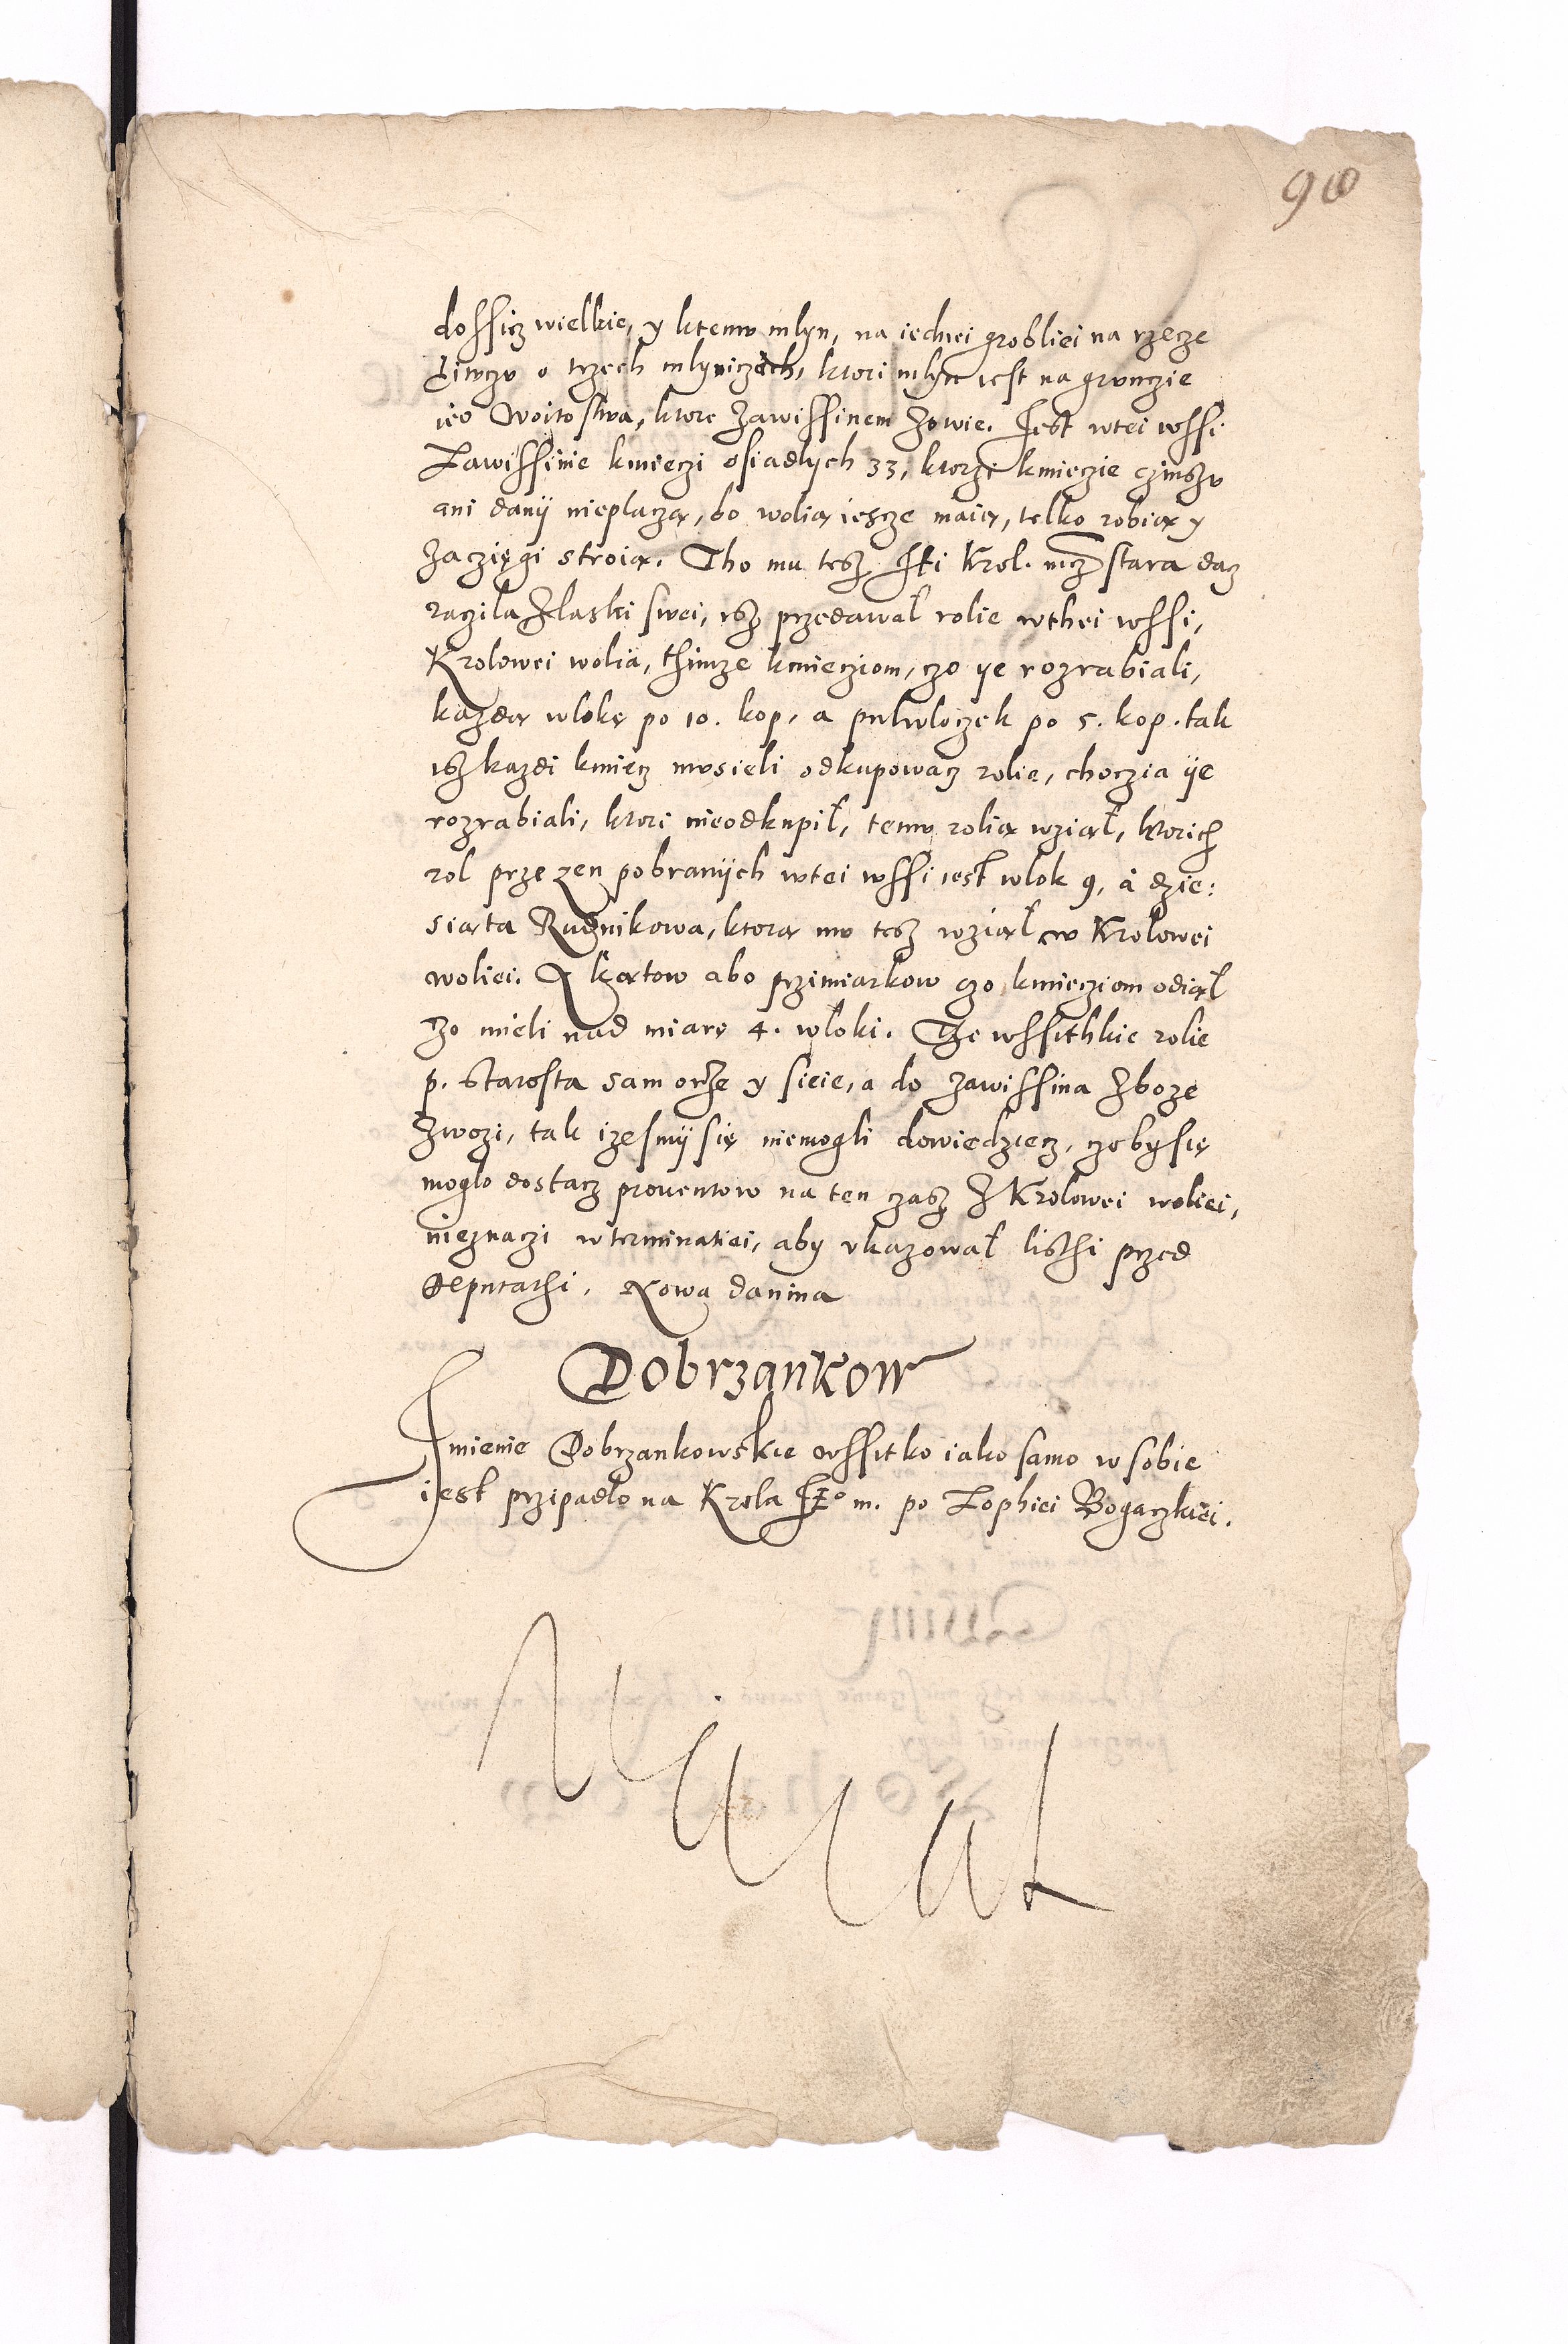 90
dossicz wielkie, y ktemu mlyn, na iednei grobliei na rzecze
Liwczu o trzech mlyniczach, ktori mlyn iest na grunczie
ieo Woitostwa, ktore Zawissinem zowie. Jest wtei wssi
Zawissinie kmieczi osiadlych 33, ktorzi kmieczie czinszu
ani danÿ nieplaczą, bo wolią iescze maią, telko robią y
zaczięgi stroią. Tho mu tesz Krol. mcz stara dacz
raczila Zlaski swei, isz przedawał rolie wthei wssi,
Krolowei wolia, thimze kmiecziom, czo ye rozrabiali,
kazdą wlokę po 10. kop, a pulwloczek po 5. kop. tak
isz kazdi kmiecz musieli odkupowacz rolie, choczia ÿe
rozrabiali, ktori nieodkupił, temu rolią wział, ktorich
rol przezen pobranÿch wtei wssi iest wlok 9, à dzie:
siąta Rudnikowa, ktorą mu tesz wziął w Krolowei
woliei. Z kątow abo przimiarkow czo kmiecziom odiął
zo mieli nad miarę 4. wloki. The wssithkie rolie
p. Starosta sam orze y sieie, a do Zawissina Zboze
Zwozi, tak izesmÿ się niemogli dowiedziecz, czobysię
moglo dostacz prouentow na ten czasz Z Krolowei woliei,
nieznaczi wterminatiei, aby ukazował listhi przed
Deputathi. Nowa danina
Dobrzankow
Jmienie Dobrzankowskie wssitko iako samo w sobie
iest przipadlo na Krola m. po Zophiei Bogaczkiei.